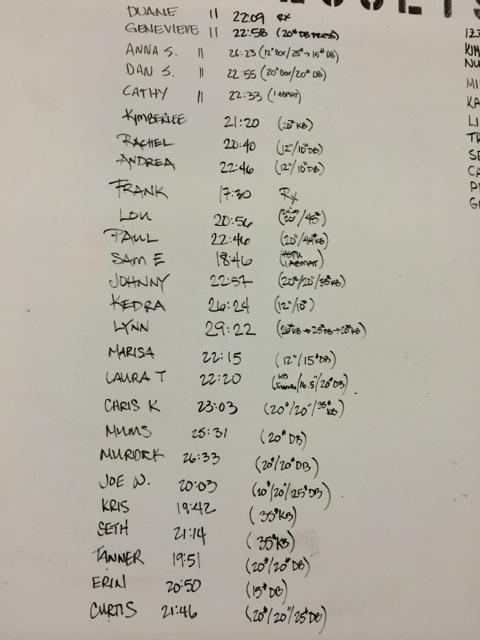 DUANE 11 22:09 RX
GENEVIEVE 11 22:58 (20# DB PRESS)
ANNA S. 11 26:23 (12" BOX/25#→15# DB)
DAN S. 11 22:55 (20" BOX/20# DB)
CATHY 11 22:33 (1 ABMAT)
KYMBERLEE 21:20 (20# KB)
RACHEL 20:40 (12"/10# DB)
ANDREA 22:46 (12"/10# DB)
FRANK 17:30 Rx
LOU 20:56
PAUL 22:46 (20"/44# KB)
SAM E 18:46 (1 ABMAT)
JOHNNY 22:57 (20#/20"/35# KB)
KEDRA 26:24 (12"/10#)
LYNN 29:22 (26# KB→25# DB→20# KB)
MARISA 22:15 (12"/15# DB)
LAURA T 22:20 /16.5"/20# DB)
CHRIS K 23:03 (20#/20"/35# KB)
MUMS 25:31 (20# DB)
MURDOCK 26:33 (20#/20# DB)
JOE W. 20:03 (20#/20"/25# DB)
KRIS 19:42 (35# KB)
SETH 21:14 (35# KB)
TANNER 19:51 (20#/20# DB)
ERIN 20:50 (15# DB)
CURTIS 21:46 (20#/20"/25# DB)
123
KIM
NU
MI
KA
LI
TR
SE
CA